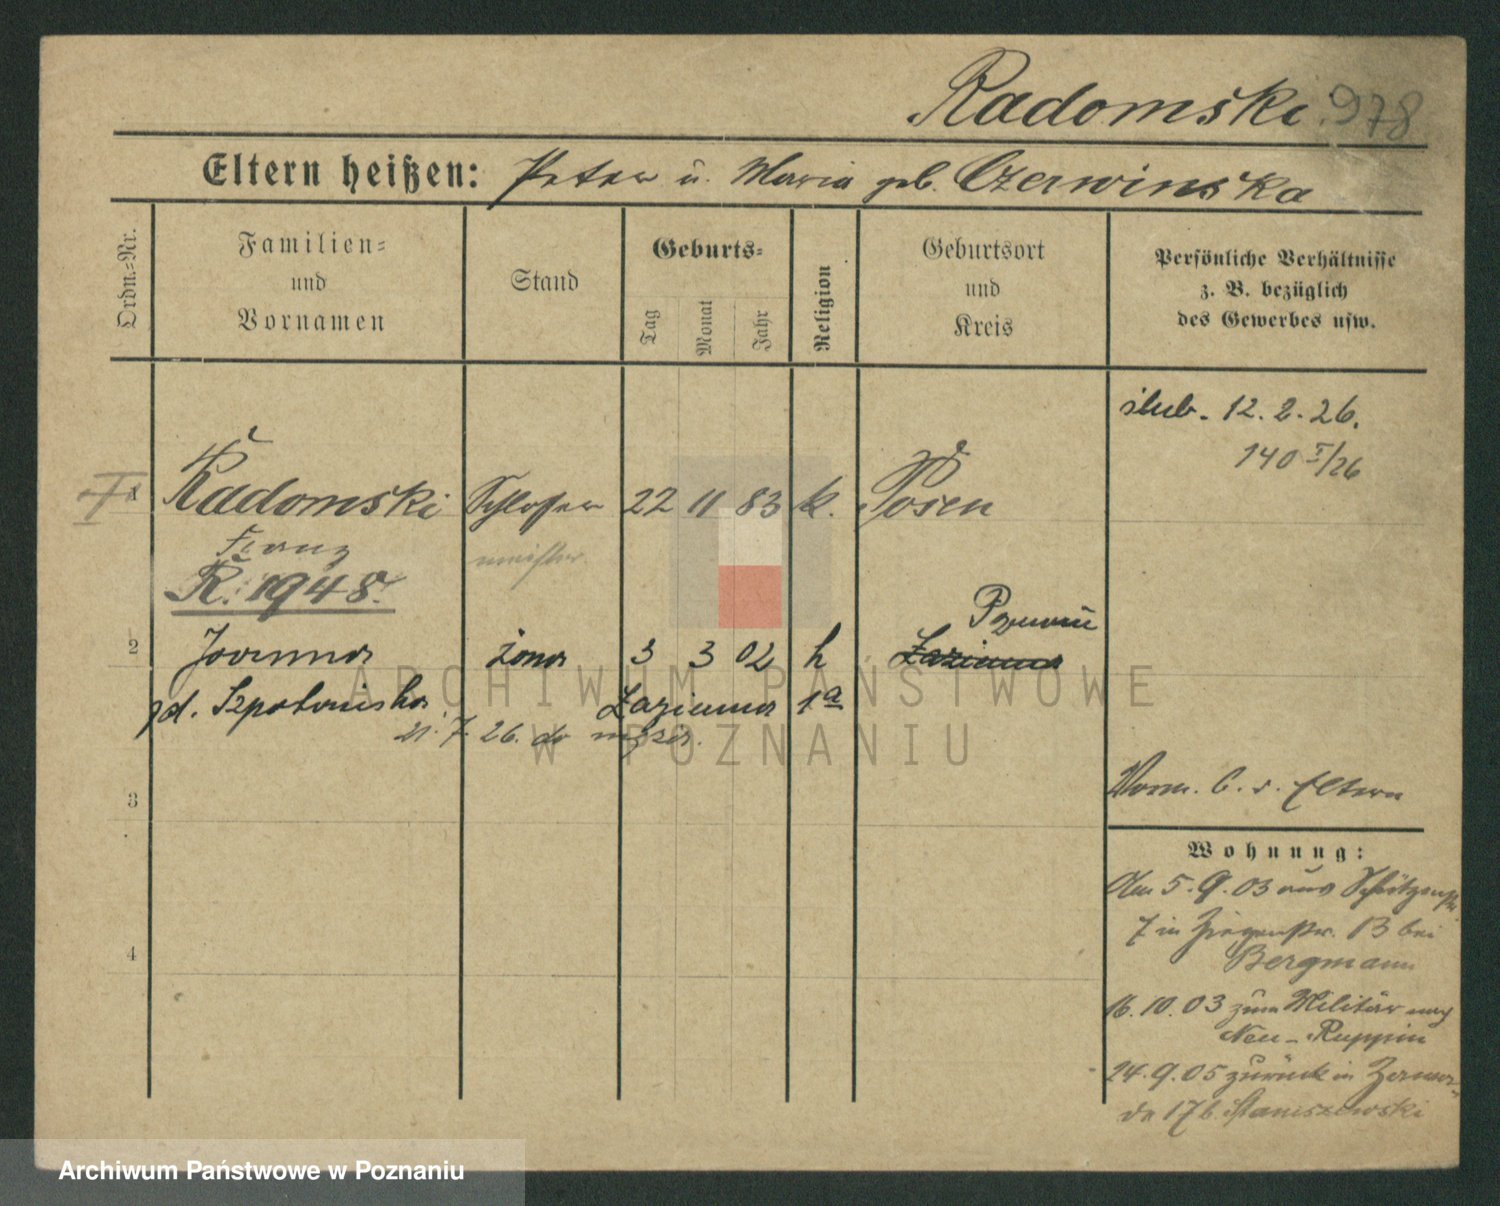 Radomski 978
Eltern heißen: Peter u. Maria geb. Czerwinska
Ordn.=Nr.
Familien=
und
Vornamen
Stand
Geburts=
Tag
Monat
Jahr
Religion
Geburtsort
und
Kreis
Persönliche Verhältnisse
z. B. bezüglich
des Gewerbes usw.
ślub. 12. 2. 26.
140 I/26
1 Radomski Schlosser 22 11 83 k. Posen
Franz meister.
R. 1948.
Poznań
2 Joanna żona 3 3 02 k
gd. Szpotańska 1a
21. 7. 26. do męża.
ARCHIWUM PAŃSTWOWE
W POZNANIU
3
Vorm. B. d. Eltern
Wohnung:
Am 5. 9. 03 aus Schützenstr.
7 in Ziegenstr. 13 bei
Bergmann
4
16. 10. 03 zum Militär nach
Neu-Ruppin
24. 9. 05 zurück in
17 b. Staniszewski
Archiwum Państwowe w Poznaniu